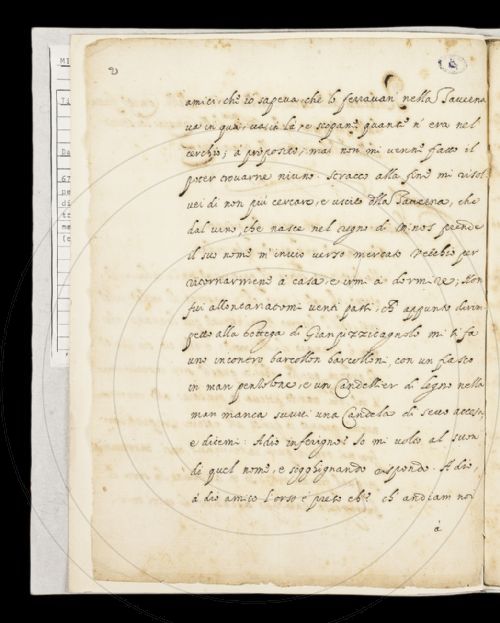 amici, che io sapeva, che lo serravan nella Taverna
va in qua, va in là, e scopan quanti n'era nel
cerchio; à proposito, mai non mi venne fatto il
poter trovarne niuno. Stracco alla fine mi risol
vei di non piu cercare, e uscito dlla Taverna, che
dal vino, che nasce nel regno di Minos prende
il suo nome m'inviai verso mercato vecchio per
ritornarmene à casa, e irmi à dormire; Non
fui allontanatomi venti passi, ch' appunto dirim
petto alla bottega di Gianpizzicagnolo mi si fa
uno incontro barcollon barcolloni, con un fiasco
in man penzolone, e un Candellier di legno nella
man manca suvvi una Candela di sevo accesa,
e dicemi: Adio inferigno: Io mi volto al suon
di quel nome, e sogghignando rispondo. A dio,
à dio amico l'orso è preto che ch andiam noi
à